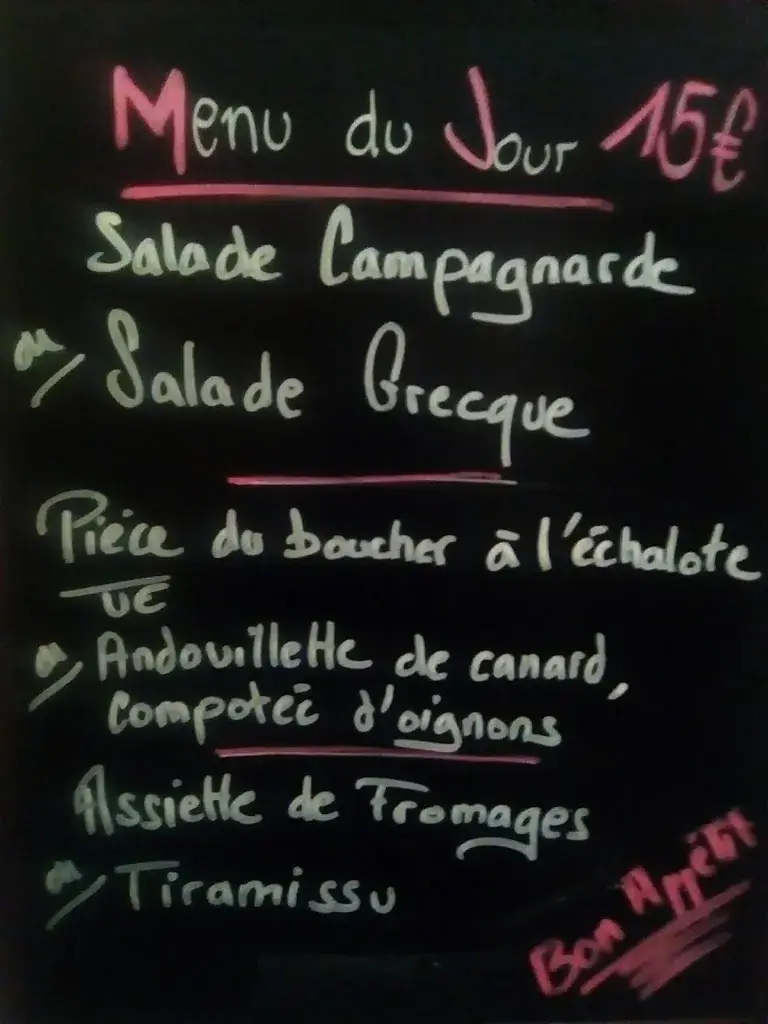 Menu du Jour 15€
Salade Campagnarde
ou/ Salade Grecque
Pièce du boucher à l'échalote
UE
ou/ Andouillette de canard,
compotée d'oignons
Assiette de Fromages
ou/ Tiramissu
Bon Appétit